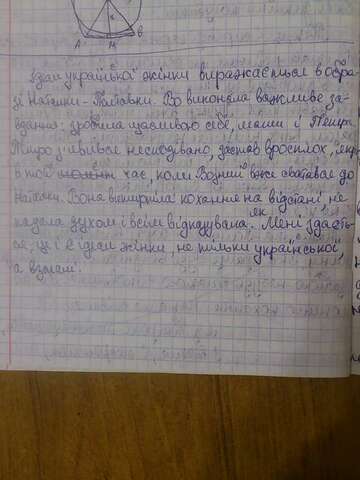 А M B
Ідеал української жінки виражається в обра
зі Наталки - Полтавки. Во виконала важливе за-
вдання: зробила щасливою себе, маму і Петра.
Петро з'явився несподівано, застав врослох, якраз
в той час, коли Возний вже сватався до
Наталки. Вона витримала кохання на відстані, не
падала духом і всім відказувала. як Мені здаєть-
ся, це і є ідеал жінки, не тільки української,
а взагалі.